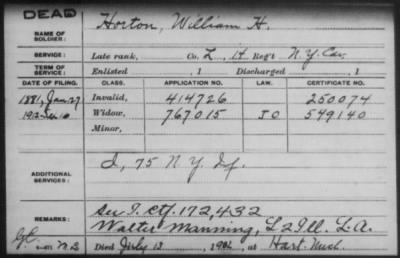 DEAD
NAME OF SOLDIER: Horton, William H.
SERVICE: Late rank, Co. L, 14 Reg't N.Y. Cav.
TERM OF SERVICE: Enlisted , 1 Discharged , 1
DATE OF FILING. CLASS. APPLICATION NO. LAW. CERTIFICATE NO.
1881, Jan. 27 Invalid, 414726 250074
1912 Widow, 767015 549140
Minor,
ADDITIONAL SERVICES: I, 75 N.Y. Inf.
REMARKS: See I. Ctf. 172,432
Walter Manning, L 2 Ill. L.A.
Died July 12, 1902, at Hart. Mich.